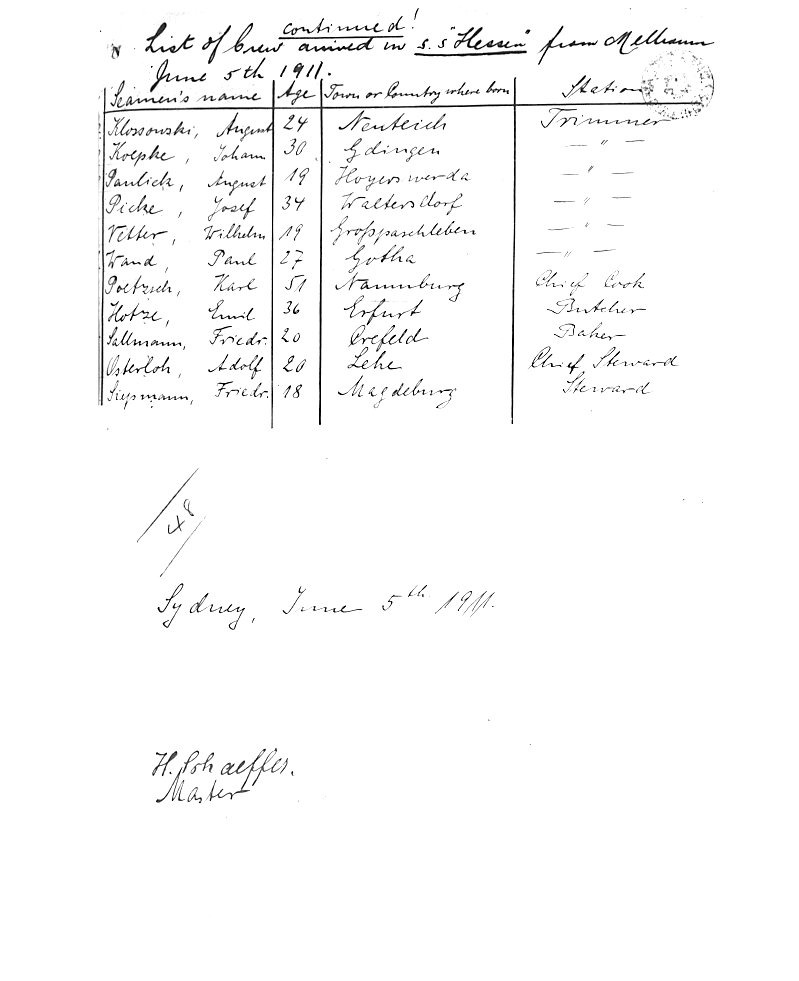 continued!
List of Crew arrived in S.S "Hessen" from Melbourn
June 5th 1911.
Seamen's name Age Town or Country where born Station
Klossowski, August 24 Neuteich Trimmer
Koepke, Johann 30 Gdingen — " —
Paulick, August 19 Hoyerswerda — " —
Picke, Josef 34 Waltersdorf — " —
Vetter, Wilhelm 19 Großpaschleben — " —
Wand, Paul 27 Gotha — " —
Poetzsch, Karl 51 Naumburg Chief Cook
Hotze, Emil 36 Erfurt Butcher
Sallmann, Friedr. 20 Crefeld Baker
Osterloh, Adolf 20 Lehe Chief Steward
Siepmann, Friedr. 18 Magdeburg Steward
48
Sydney, June 5th 1911.
H. Schaeffer.
Master